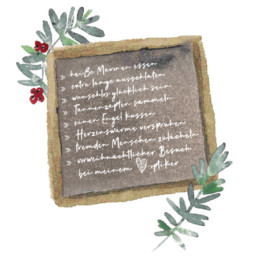 » heiße Maronen essen
» extra lange ausschlafen
» wunschlos glücklich sein
» Tannenzapfen sammeln
» einen Engel küssen
» Herzenswärme versprühen
» fremden Menschen zulächeln
» vorweihnachtlicher Besuch
bei meinem optiker